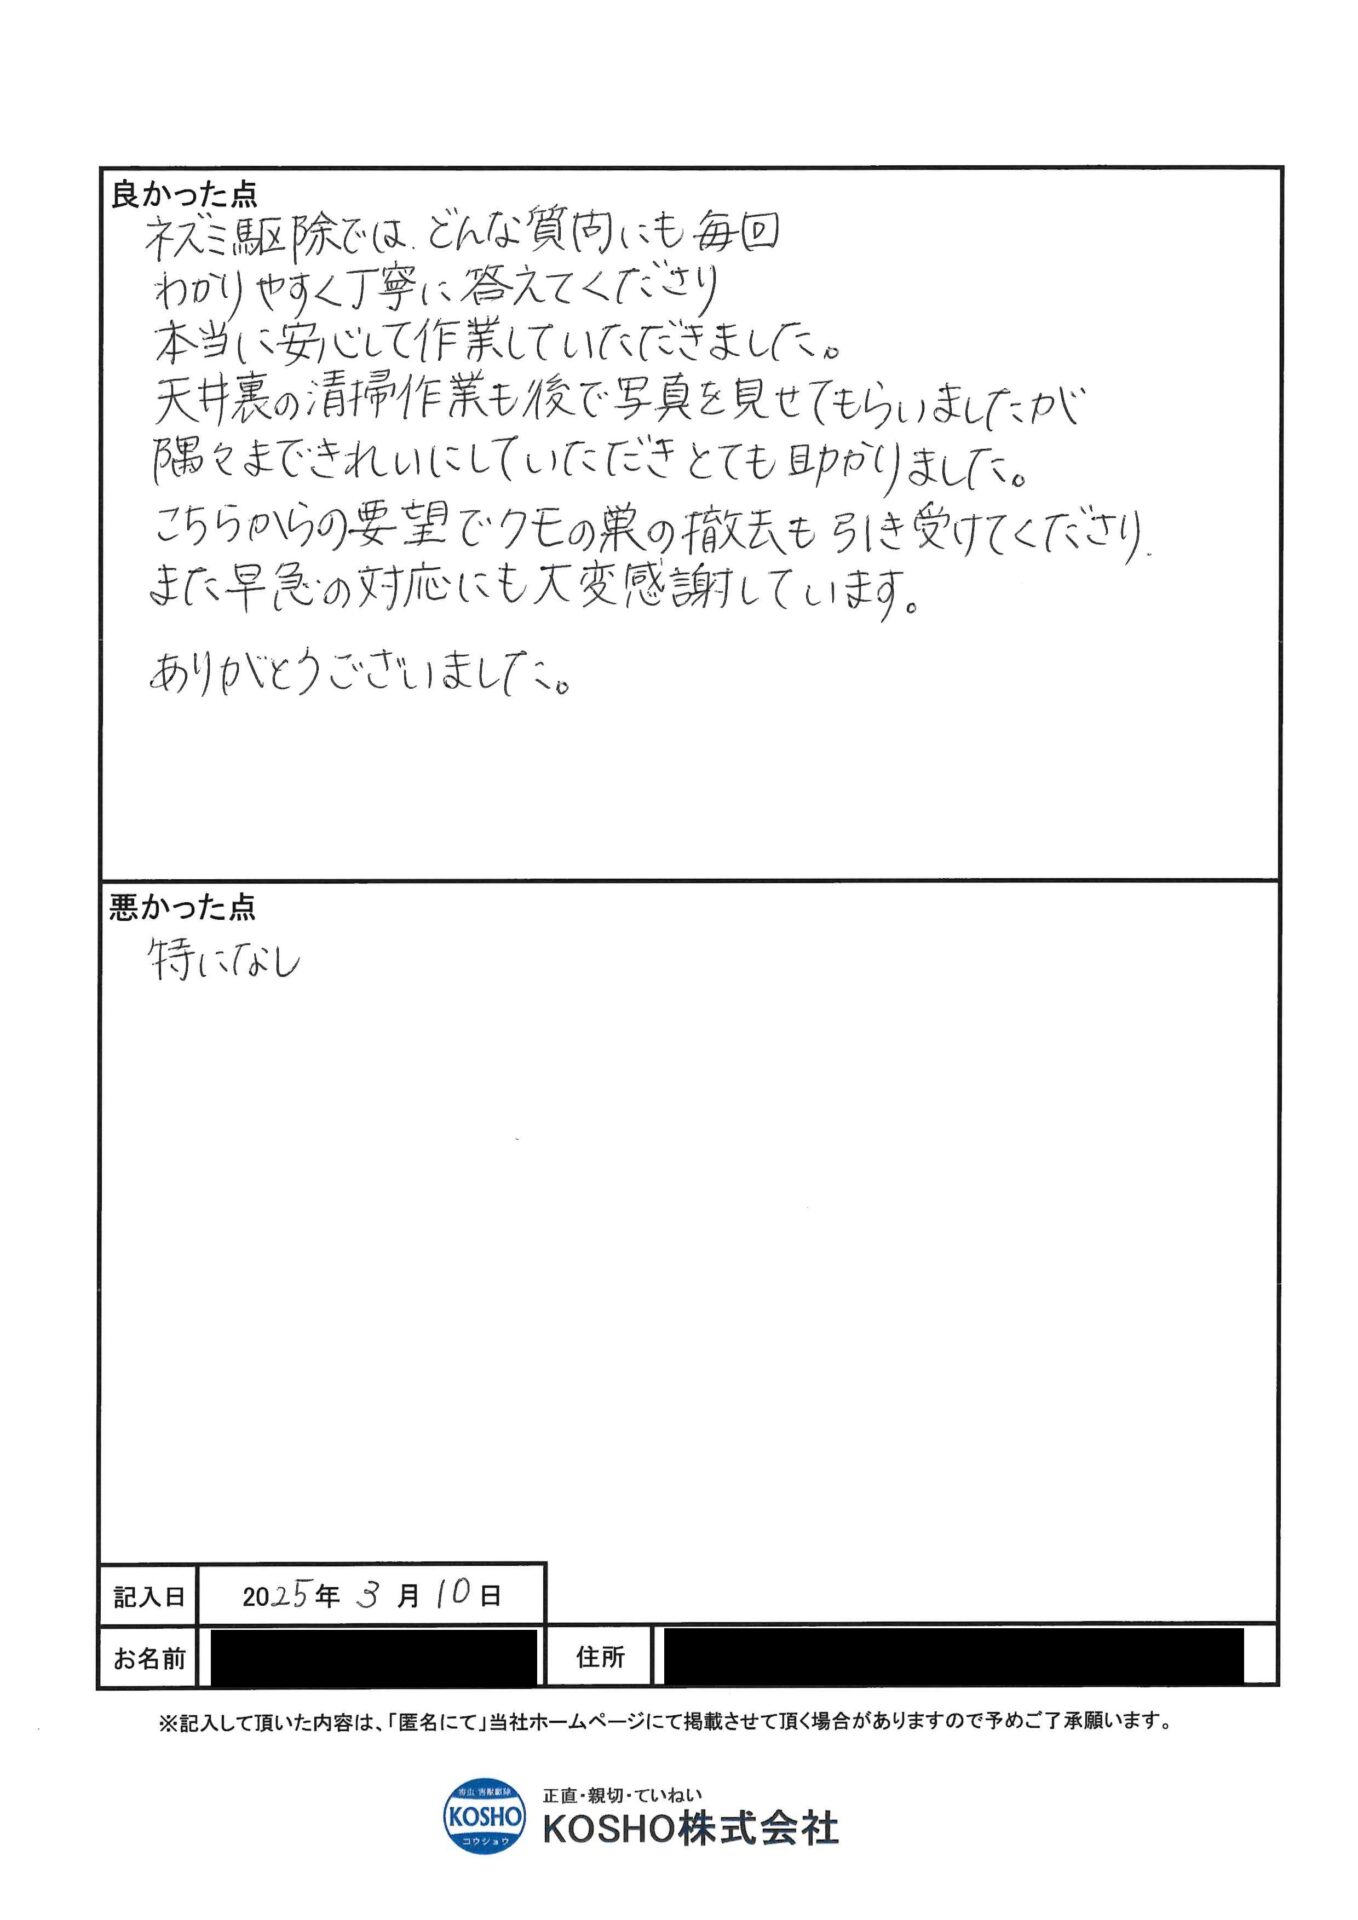 良かった点
ネズミ駆除では、どんな質問にも毎回
わかりやすく丁寧に答えてくださり
本当に安心して作業していただきました。
天井裏の清掃作業も後で写真を見せてもらいましたが
隅々まできれいにしていただきとても助かりました。
こちらからの要望でクモの巣の撤去も引き受けてくださり、
また早急の対応にも大変感謝しています。
ありがとうございました。
悪かった点
特になし
記入日 2025年 3月 10日
お名前 住所
※記入して頂いた内容は、「匿名にて」当社ホームページにて掲載させて頂く場合がありますので予めご了承願います。
害虫 害獣駆除
KOSHO
コウショウ
正直・親切・ていねい
KOSHO株式会社